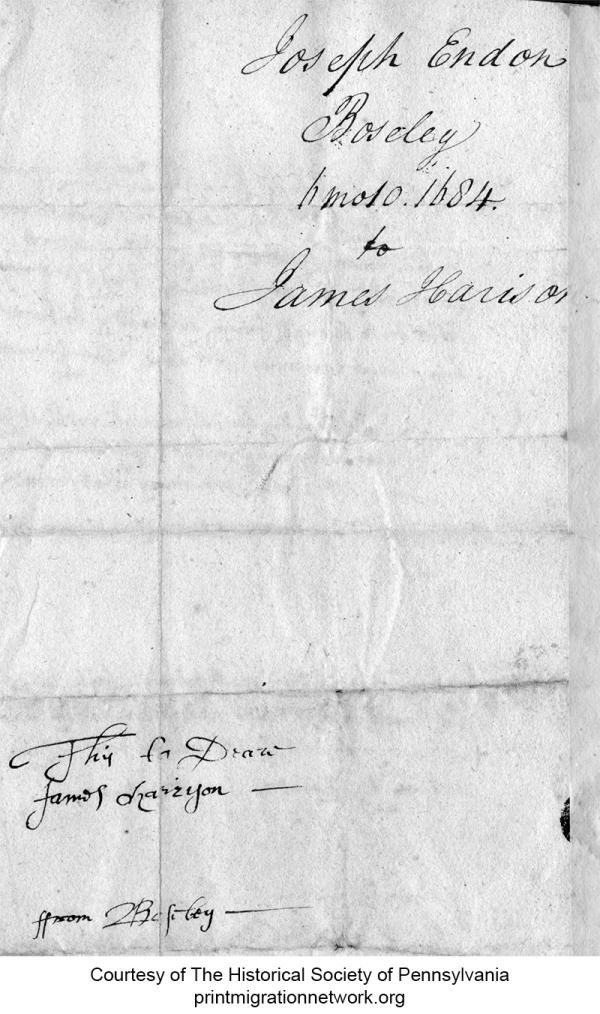 Joseph Endon
Boseley
6 mo 10. 1684.
to
James Harison
This to Deare
James Harryson —
ffrom Boseley —
Courtesy of The Historical Society of Pennsylvania
printmigrationnetwork.org